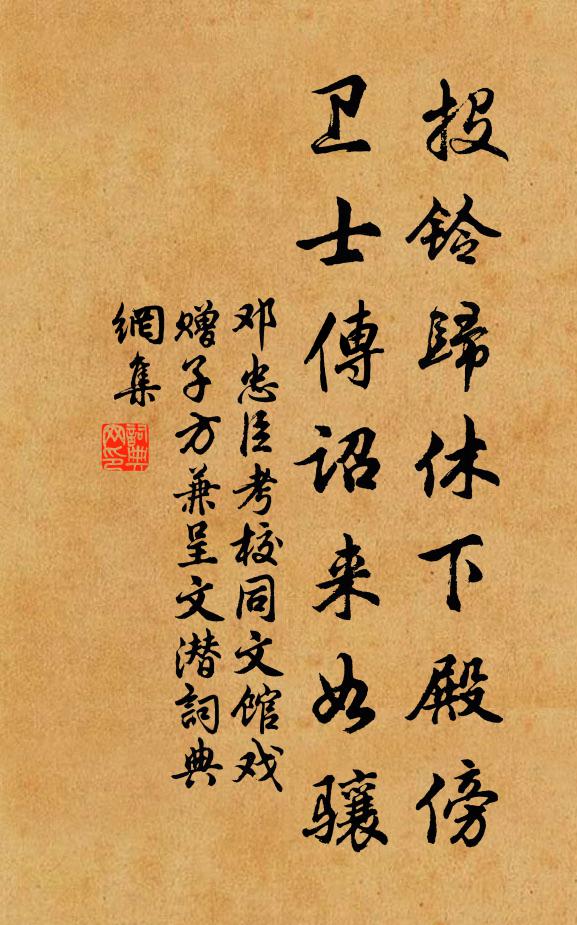 投鈴歸休下殿傍
卫士傳诏来如骧
邓忠臣考校同文馆戏
赠子方兼呈文潜詞典
網集
詞典
网印